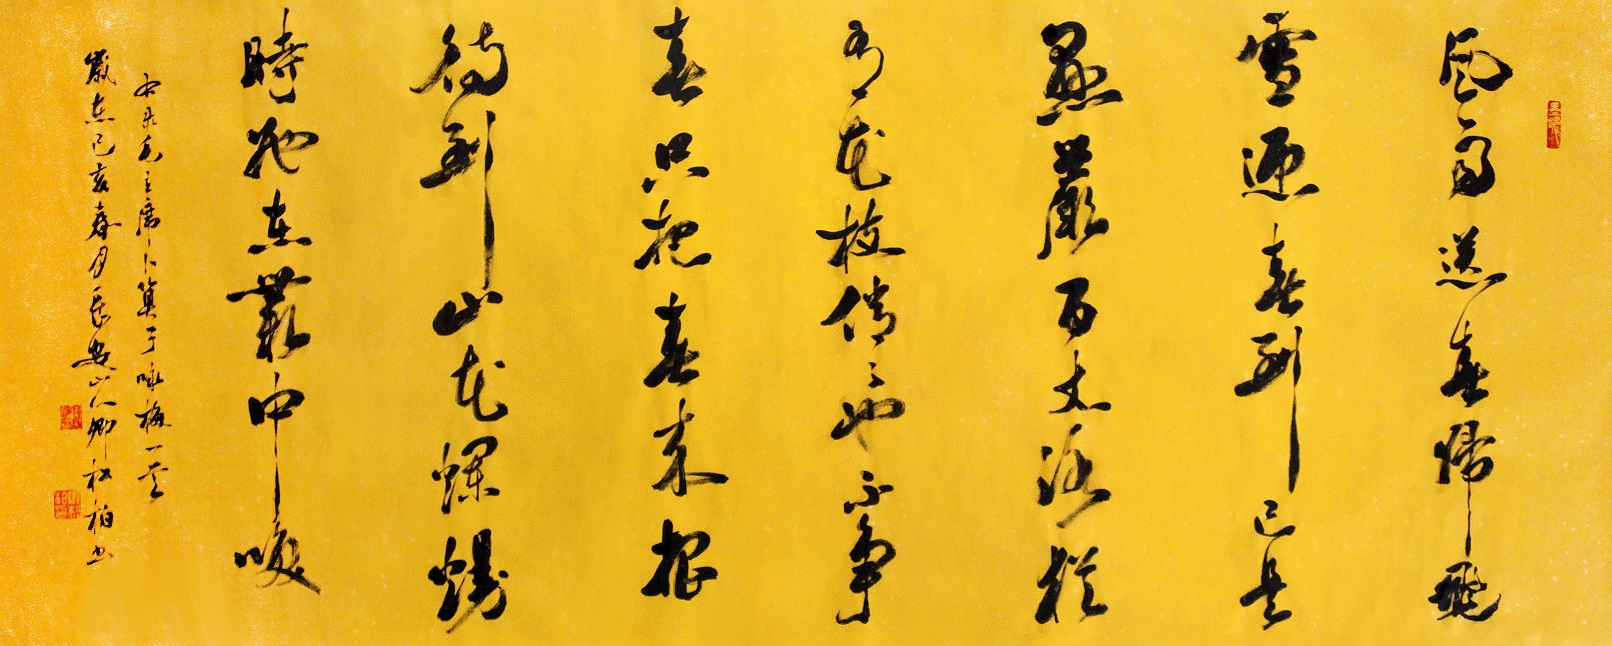 風雨送春歸飛
雪迎春到已是
懸巖百丈冰猶
有花枝俏〻也不爭
春只把春來報
待到山花爛熳
時她在叢中咲
右录毛主席卜算子咏梅一首
歲在己亥春月長安山人卿松柏书